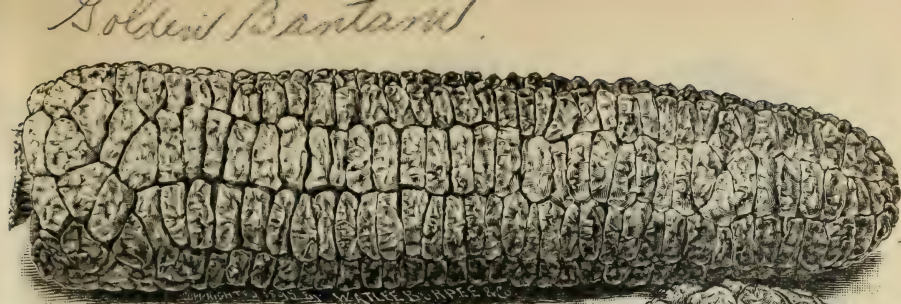 Golden Bantam.
COPYRIGHTED 1895 BY W. ATLEE BURPEE & CO.